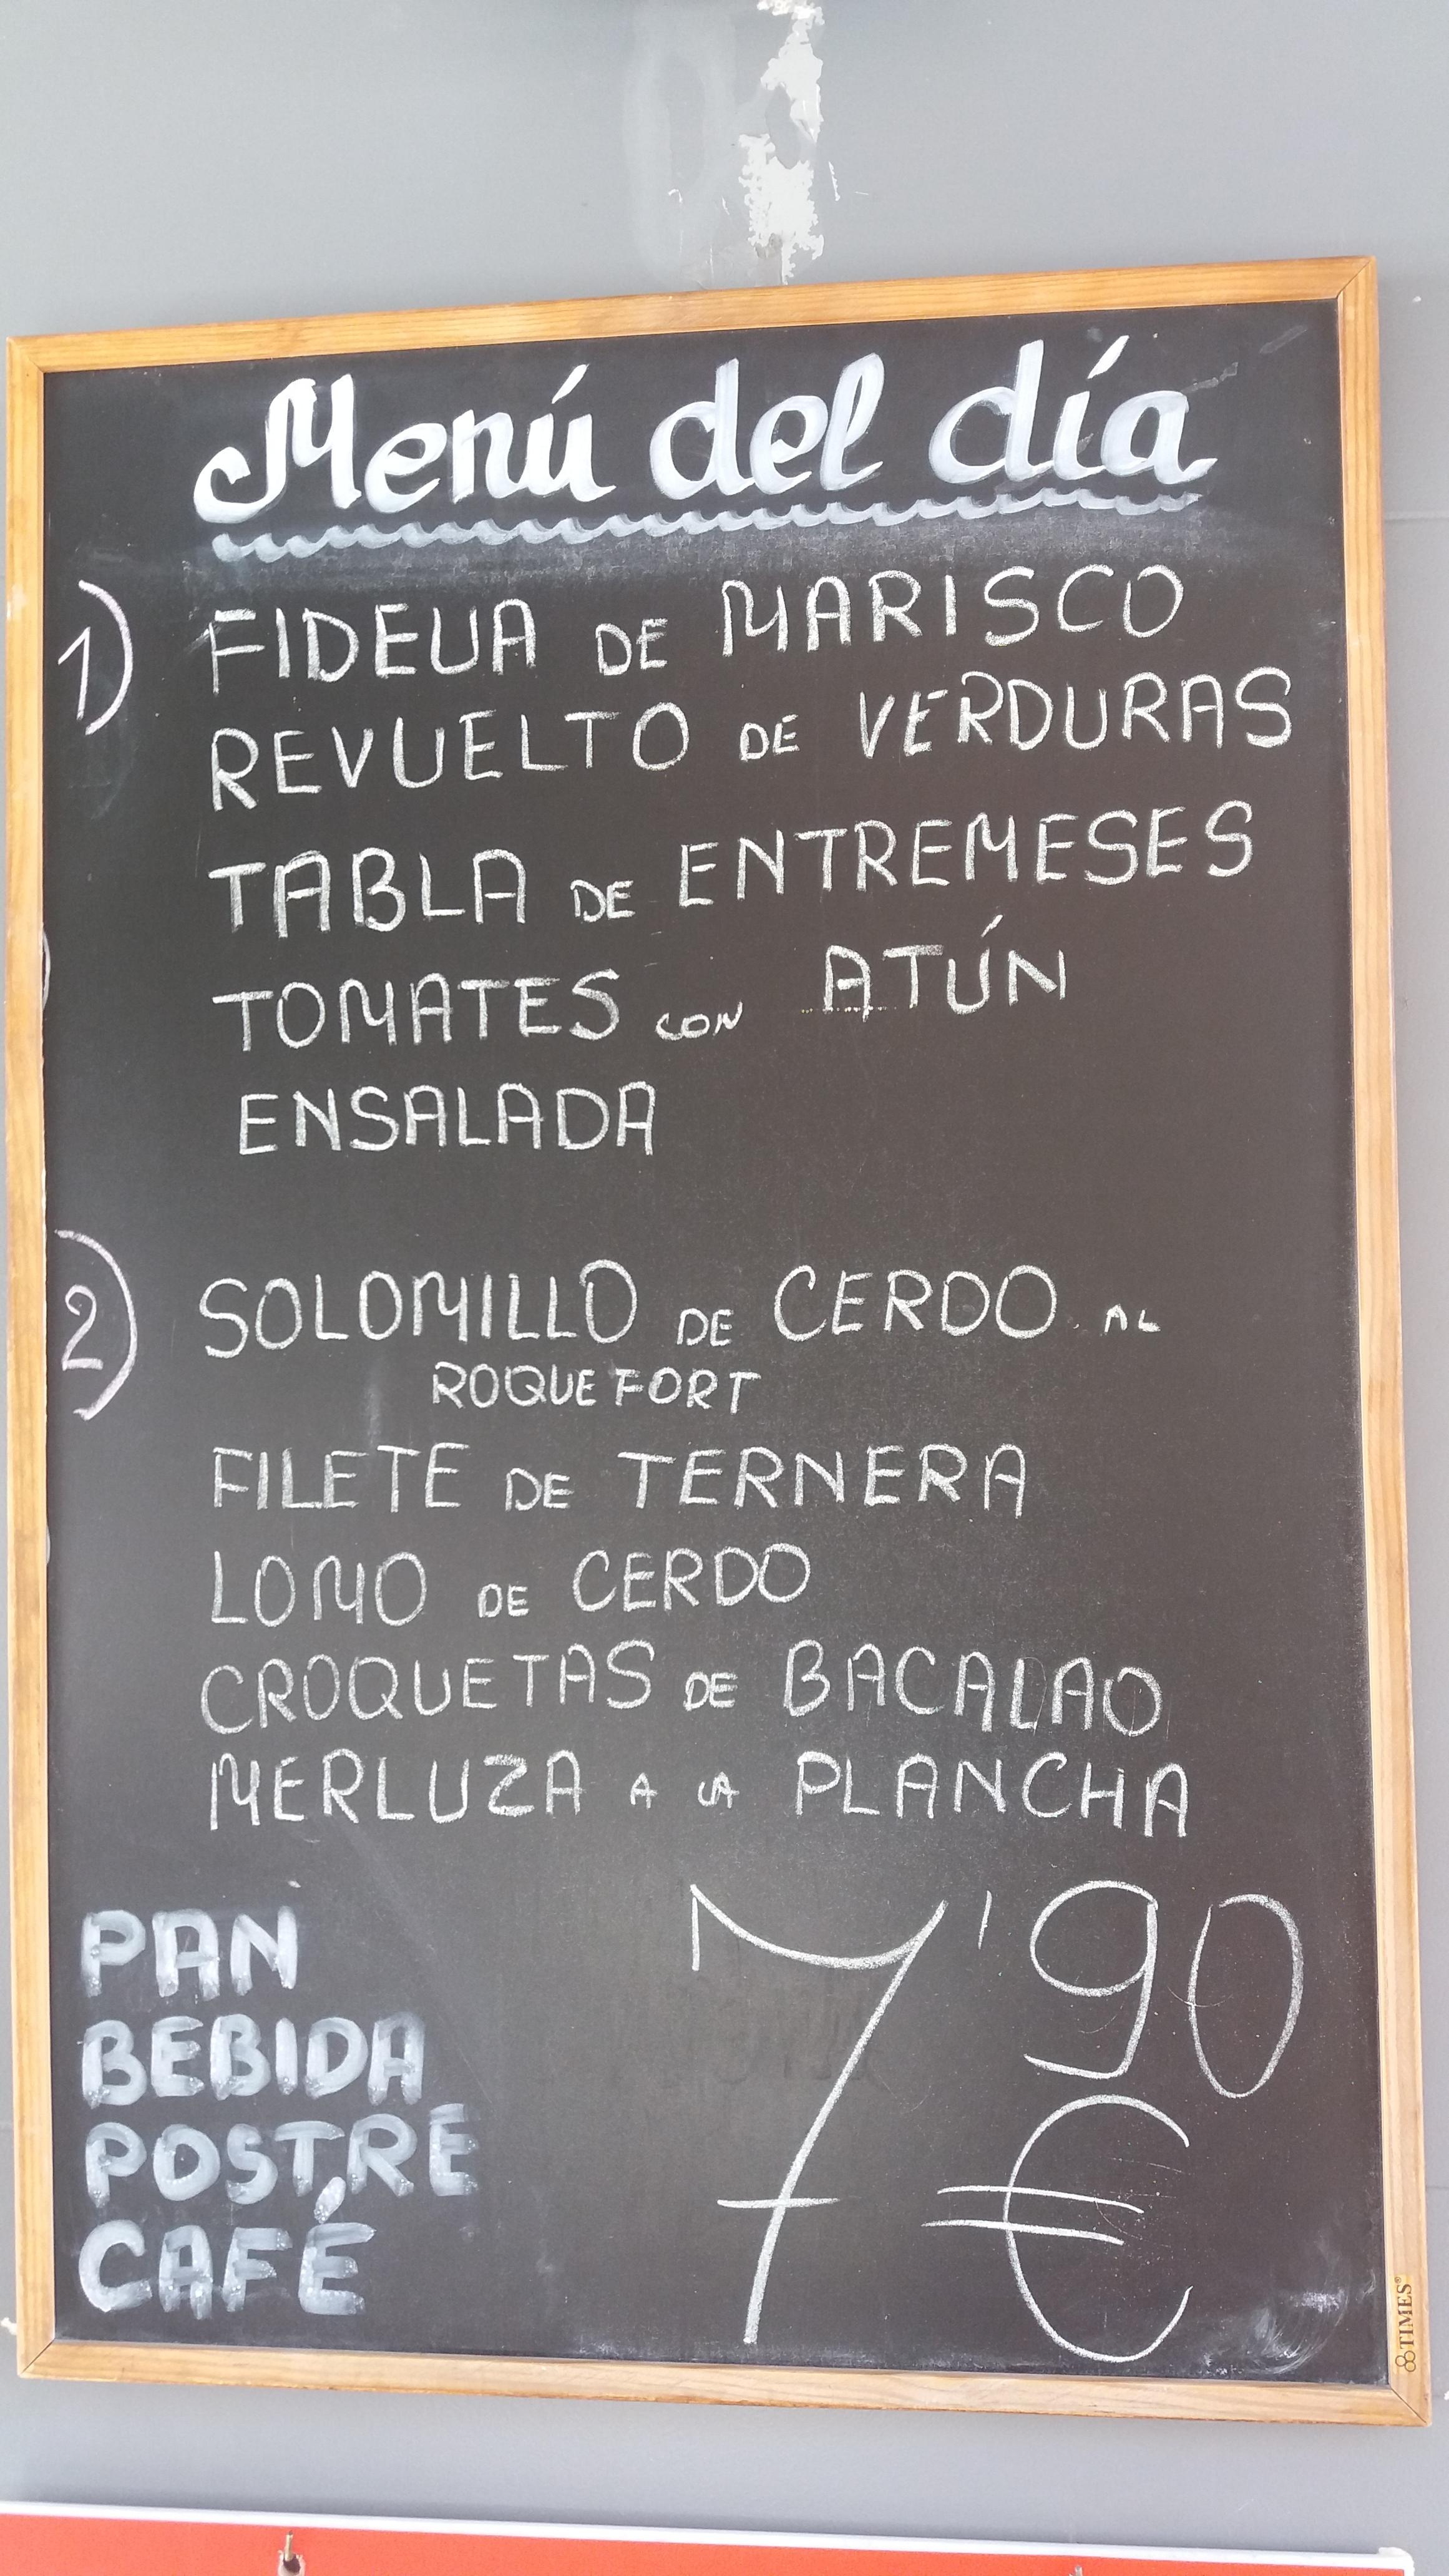 Menú del día
1) FIDEUA DE MARISCO
REVUELTO DE VERDURAS
TABLA DE ENTREMESES
TOMATES CON ATÚN
ENSALADA
2) SOLOMILLO DE CERDO AL
ROQUEFORT
FILETE DE TERNERA
LOMO DE CERDO
CROQUETAS DE BACALAO
MERLUZA A LA PLANCHA
PAN
BEBIDA
POSTRE
CAFÉ
7'90
€
TIMES®